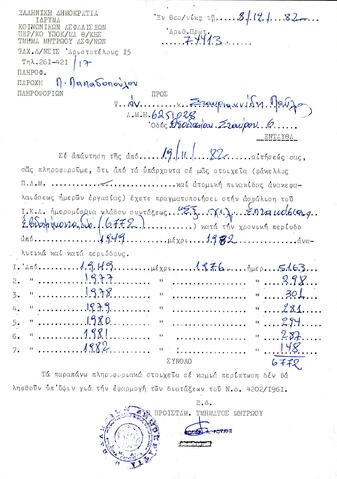 ΕΛΛΗΝΙΚΗ ΔΗΜΟΚΡΑΤΙΑ
ΙΔΡΥΜΑ
ΚΟΙΝΩΝΙΚΩΝ ΑΣΦΑΛΙΣΕΩΝ
ΠΕΡ/ΚΟ ΥΠΟΚ/ΜΑ Θ/ΚΗΣ
ΤΜΗΜΑ ΜΗΤΡΩΟΥ ΑΣΦ/ΝΩΝ
ΤΑΧ.Δ/ΝΣΙΣ Αριστοτέλους 15
Τηλ.261-421 /17
Εν Θεσ/νίκη τη 8/12/ 82
Αριθ.Πρωτ. 71413
ΠΛΗΡΟΦ.
ΠΑΡΟΧΗ Π. Παπαδοπούλου
ΠΛΗΡΟΦΟΡΙΩΝ
ΠΡΟΣ
Τ όν κ. Σταυριανίδη Παύλο
Α.Μ.Η 6251028
Οδός Σταύρου 6
ΕΝΤΑΥΘΑ
Σέ ἀπάντηση τῆς ἀπό 19/11/ 82 αἰτήσεώς σας,
σᾶς πληροφοροῦμε, ὅτι ἀπό τά ὑπάρχοντα σέ μᾶς στοιχεῖα (φάκελλος
Π.Δ.Μ. καί ἀτομική πινακίδος ἀνακεφα-
λαιώσεως ἡμερῶν ἐργασίας) ἔχετε πραγματοποιήσει στήν ἀσφάλιση τοῦ
Ι.Κ.Α. ἡμερομίσθια κλάδου συντάξεως
(6772) κατά τήν χρονική περίοδο
ἀπό 1949 μέχρι 1982 ἀνα-
λυτικά καί κατά περιόδους.
1. Ἀπό 1949 μέχρι 1976 ἡμερ. 5163
2. " 1977 " " 298
3. " 1978 " " 301
4. " 1979 " " 281
5. " 1980 " " 294
6. " 1981 " " 287
7. " 1982 " " 148
ΣΥΝΟΛΟ 6772
Τά παραπάνω πληροφοριακά στοιχεῖα σέ καμιά περίπτωση δέν θά
ληφθοῦν ὑπ'ὄψιν γιά τήν ἐφαρμογή τῶν διατάξεων τοῦ Ν.Δ. 4202/1961.
Ε.Δ.
ΠΡΟΙΣΤΑΜ. ΤΜΗΜΑΤΟΣ ΜΗΤΡΩΟΥ